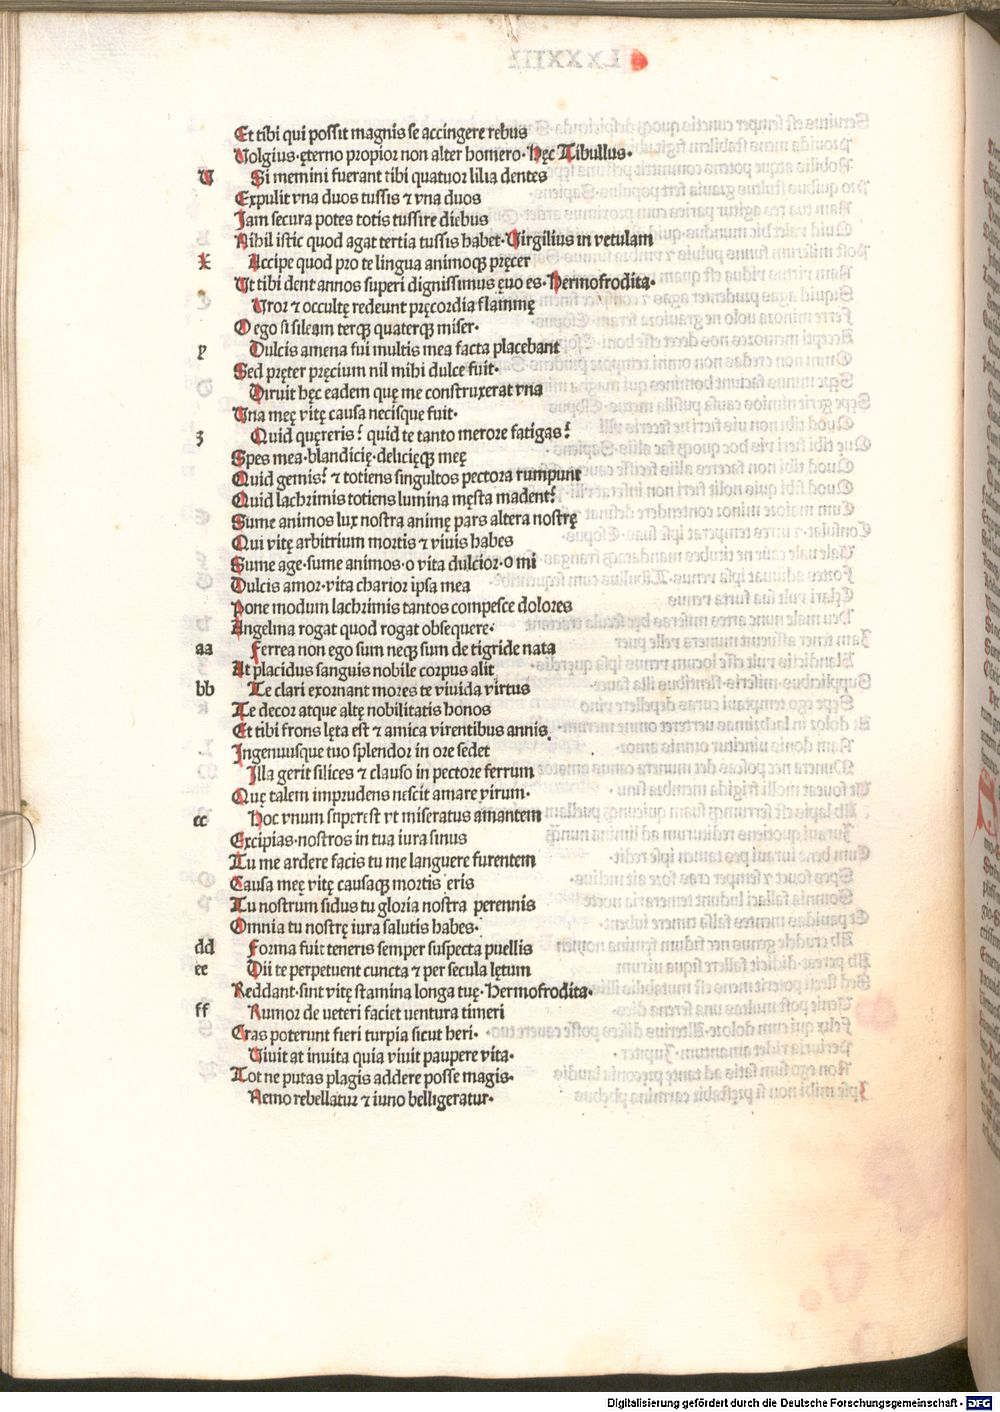 Et tibi qui possit magnis se accingere rebus
Volgius·ęterno propior non alter homero·Hęc Tibullus·
V Si memini fuerant tibi quatuor lilia dentes
Expulit vna duos tussis ⁊ vna duos
Jam secura potes totis tussire diebus
Nihil istic quod agat tertia tussis habet·Virgilius in vetulam
x Accipe quod pro te lingua animoqꝫ pręcer
Vt tibi dent annos superi dignissimus ęuo es·Hermofrodita·
Vror ⁊ occultę redeunt pręcordia flammę
O ego si sileam terqꝫ quaterqꝫ miser·
y Dulcis amena fui multis mea facta placebant
Sed pręter pręcium nil mihi dulce fuit·
Diruit hęc eadem quę me construxerat vna
Vna meę vitę causa necisque fuit·
z Quid quęreris? quid te tanto merore fatigas?
Spes mea·blandicię·delicięqꝫ meę
Quid gemis? ⁊ totiens singultos pectora rumpunt
Quid lachrimis totiens lumina męsta madent?
Sume animos lux nostra animę pars altera nostrę
Qui vitę arbitrium mortis ⁊ viuis habes
Sume age·sume animos·o vita dulcior·o mi
Dulcis amor·vita charior ipsa mea
Pone modum lachrimis tantos compesce dolores
Angelina rogat quod rogat obsequere·
aa Ferrea non ego sum neqꝫ sum de tigride nata
At placidus sanguis nobile corpus alit
bb Te clari exornant mores te viuida virtus
Te decor atque altę nobilitatis honos
Et tibi frons lęta est ⁊ amica virentibus annis
Ingenuusque tuo splendor in ore sedet
Illa gerit silices ⁊ clauso in pectore ferrum
Quę talem imprudens nescit amare virum·
cc Hoc vnum superest vt miseratus amantem
Excipias·nostros in tua iura sinus
Tu me ardere facis tu me languere furentem
Causa meę vitę causaqꝫ mortis eris
Tu nostrum sidus tu gloria nostra perennis
Omnia tu nostrę iura salutis habes·
dd Forma fuit teneris semper suspecta puellis
ee Dii te perpetuent cuncta ⁊ per secula lętum
Reddant·sint vitę stamina longa tuę·Hermofrodita·
ff Rumor de veteri faciet ventura timeri
Cras poterunt fieri turpia sicut heri·
Viuit at inuita quia viuit paupere vita·
Tot ne putas plagis addere posse magis·
Nemo rebellatur ⁊ iuno belligeratur·
Digitalisierung gefördert durch die Deutsche Forschungsgemeinschaft - DFG